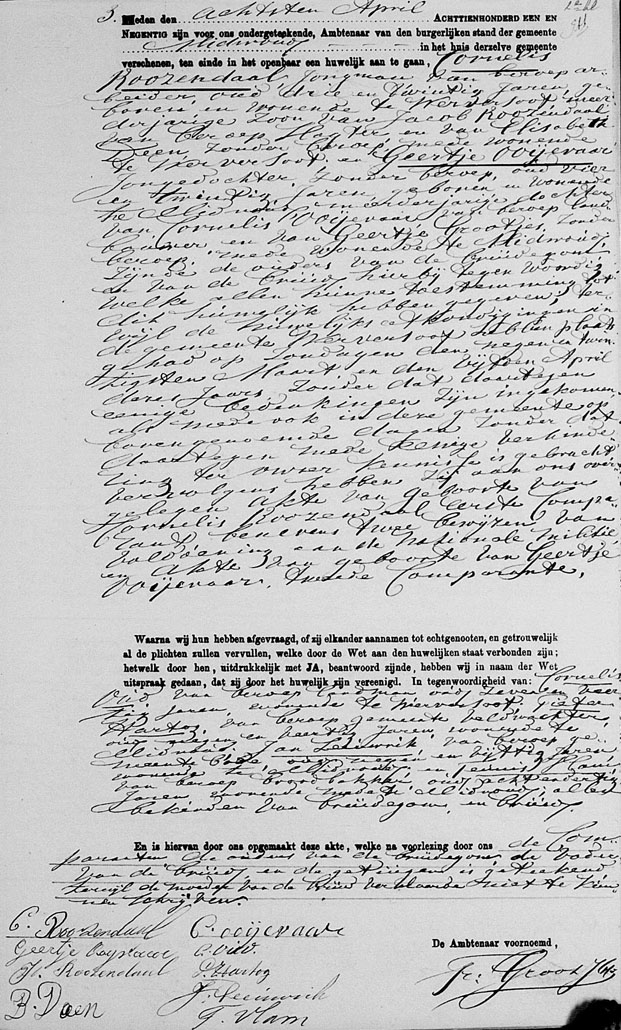 3.
Heden den achtsten April ACHTTIENHONDERD EEN EN
NEGENTIG zijn voor ons ondergeteekende, Ambtenaar van den burgerlijken stand der gemeente
Midwoud in het huis derzelve gemeente
verschenen, ten einde in het openbaar een huwelijk aan te gaan, Cornelis
Roozendaal, jongman van beroep ar-
beider, oud drie en twintig jaren, ge-
boren en wonende te Wervershoof, meer-
derjarige zoon van Jacob Roozendaal
van beroep en van Elisabeth
zonder beroep, mede wonende
te Wervershoof, en Geertje Ooijevaar
jongedochter, zonder beroep, oud vier
en twintig jaren, geboren en wonende
te Midwoud, meerderjarige dochter
van Cornelis Ooijevaar van beroep land-
bouwer en van Geertje Grootjes, zonder
beroep, mede wonende te Midwoud,
zijnde de ouders van de bruidegom
en van de bruid hierbij tegenwoordig
welke allen hunne toestemming tot
dit huwelijk hebben gegeven, ter-
wijl de huwelijks afkondigingen in
de gemeente Wervershoof hebben plaats
gehad op Zondagen den negen en twin-
tigsten Maart en den vijfden April
dezes jaars, zonder dat daartegen
eenige bedenkingen zijn ingekomen
als mede ook in deze gemeente op
bovengenoemde dagen zonder dat
daartegen mede eenige verhinde-
ring ter onzer kennisse is gebracht
Vervolgens hebben zij aan ons over-
gelegen Akte van geboorte van
Cornelis Roozendaal eerste Compa-
rant, benevens twee bewijzen van
voldoening aan de nationale militie,
en Akte van geboorte van Geertje
Ooijevaar, tweede Comparante.
Waarna wij hun hebben afgevraagd, of zij elkander aannamen tot echtgenooten, en getrouwelijk
al de plichten zullen vervullen, welke door de Wet aan den huwelijken staat verbonden zijn;
hetwelk door hen, uitdrukkelijk met JA, beantwoord zijnde, hebben wij in naam der Wet
uitspraak gedaan, dat zij door het huwelijk zijn vereenigd. In tegenwoordigheid van: Cornelis
van beroep landman oud zeven en veer-
tig jaren, wonende te Wervershoof,
Hartog, van beroep gemeente veldwachter,
oud en veertig jaren, wonende te
Midwoud, Jan Leeuwrik, van beroep ge-
meente bode, oud negen en vijftig jaren
wonende te Midwoud, en Vlam,
van beroep broodbakker, oud acht en dertig
jaren, wonende mede te Midwoud, allen
bekenden van bruidegom en bruid.
En is hiervan door ons opgemaakt deze akte, welke na voorlezing door ons de Com-
paranten de ouders van de bruidegom, de vader
van de bruid, en de getuigen is geteekend
terwijl de moeder van de bruid verklaarde niet te kun-
nen schrijven.
C. Roozendaal C. ooijevaar
Geertje Ooyevaar
J. Roozendaal P. Hartog
De Ambtenaar voornoemd,
J. Leeuwrik
T. Vlam